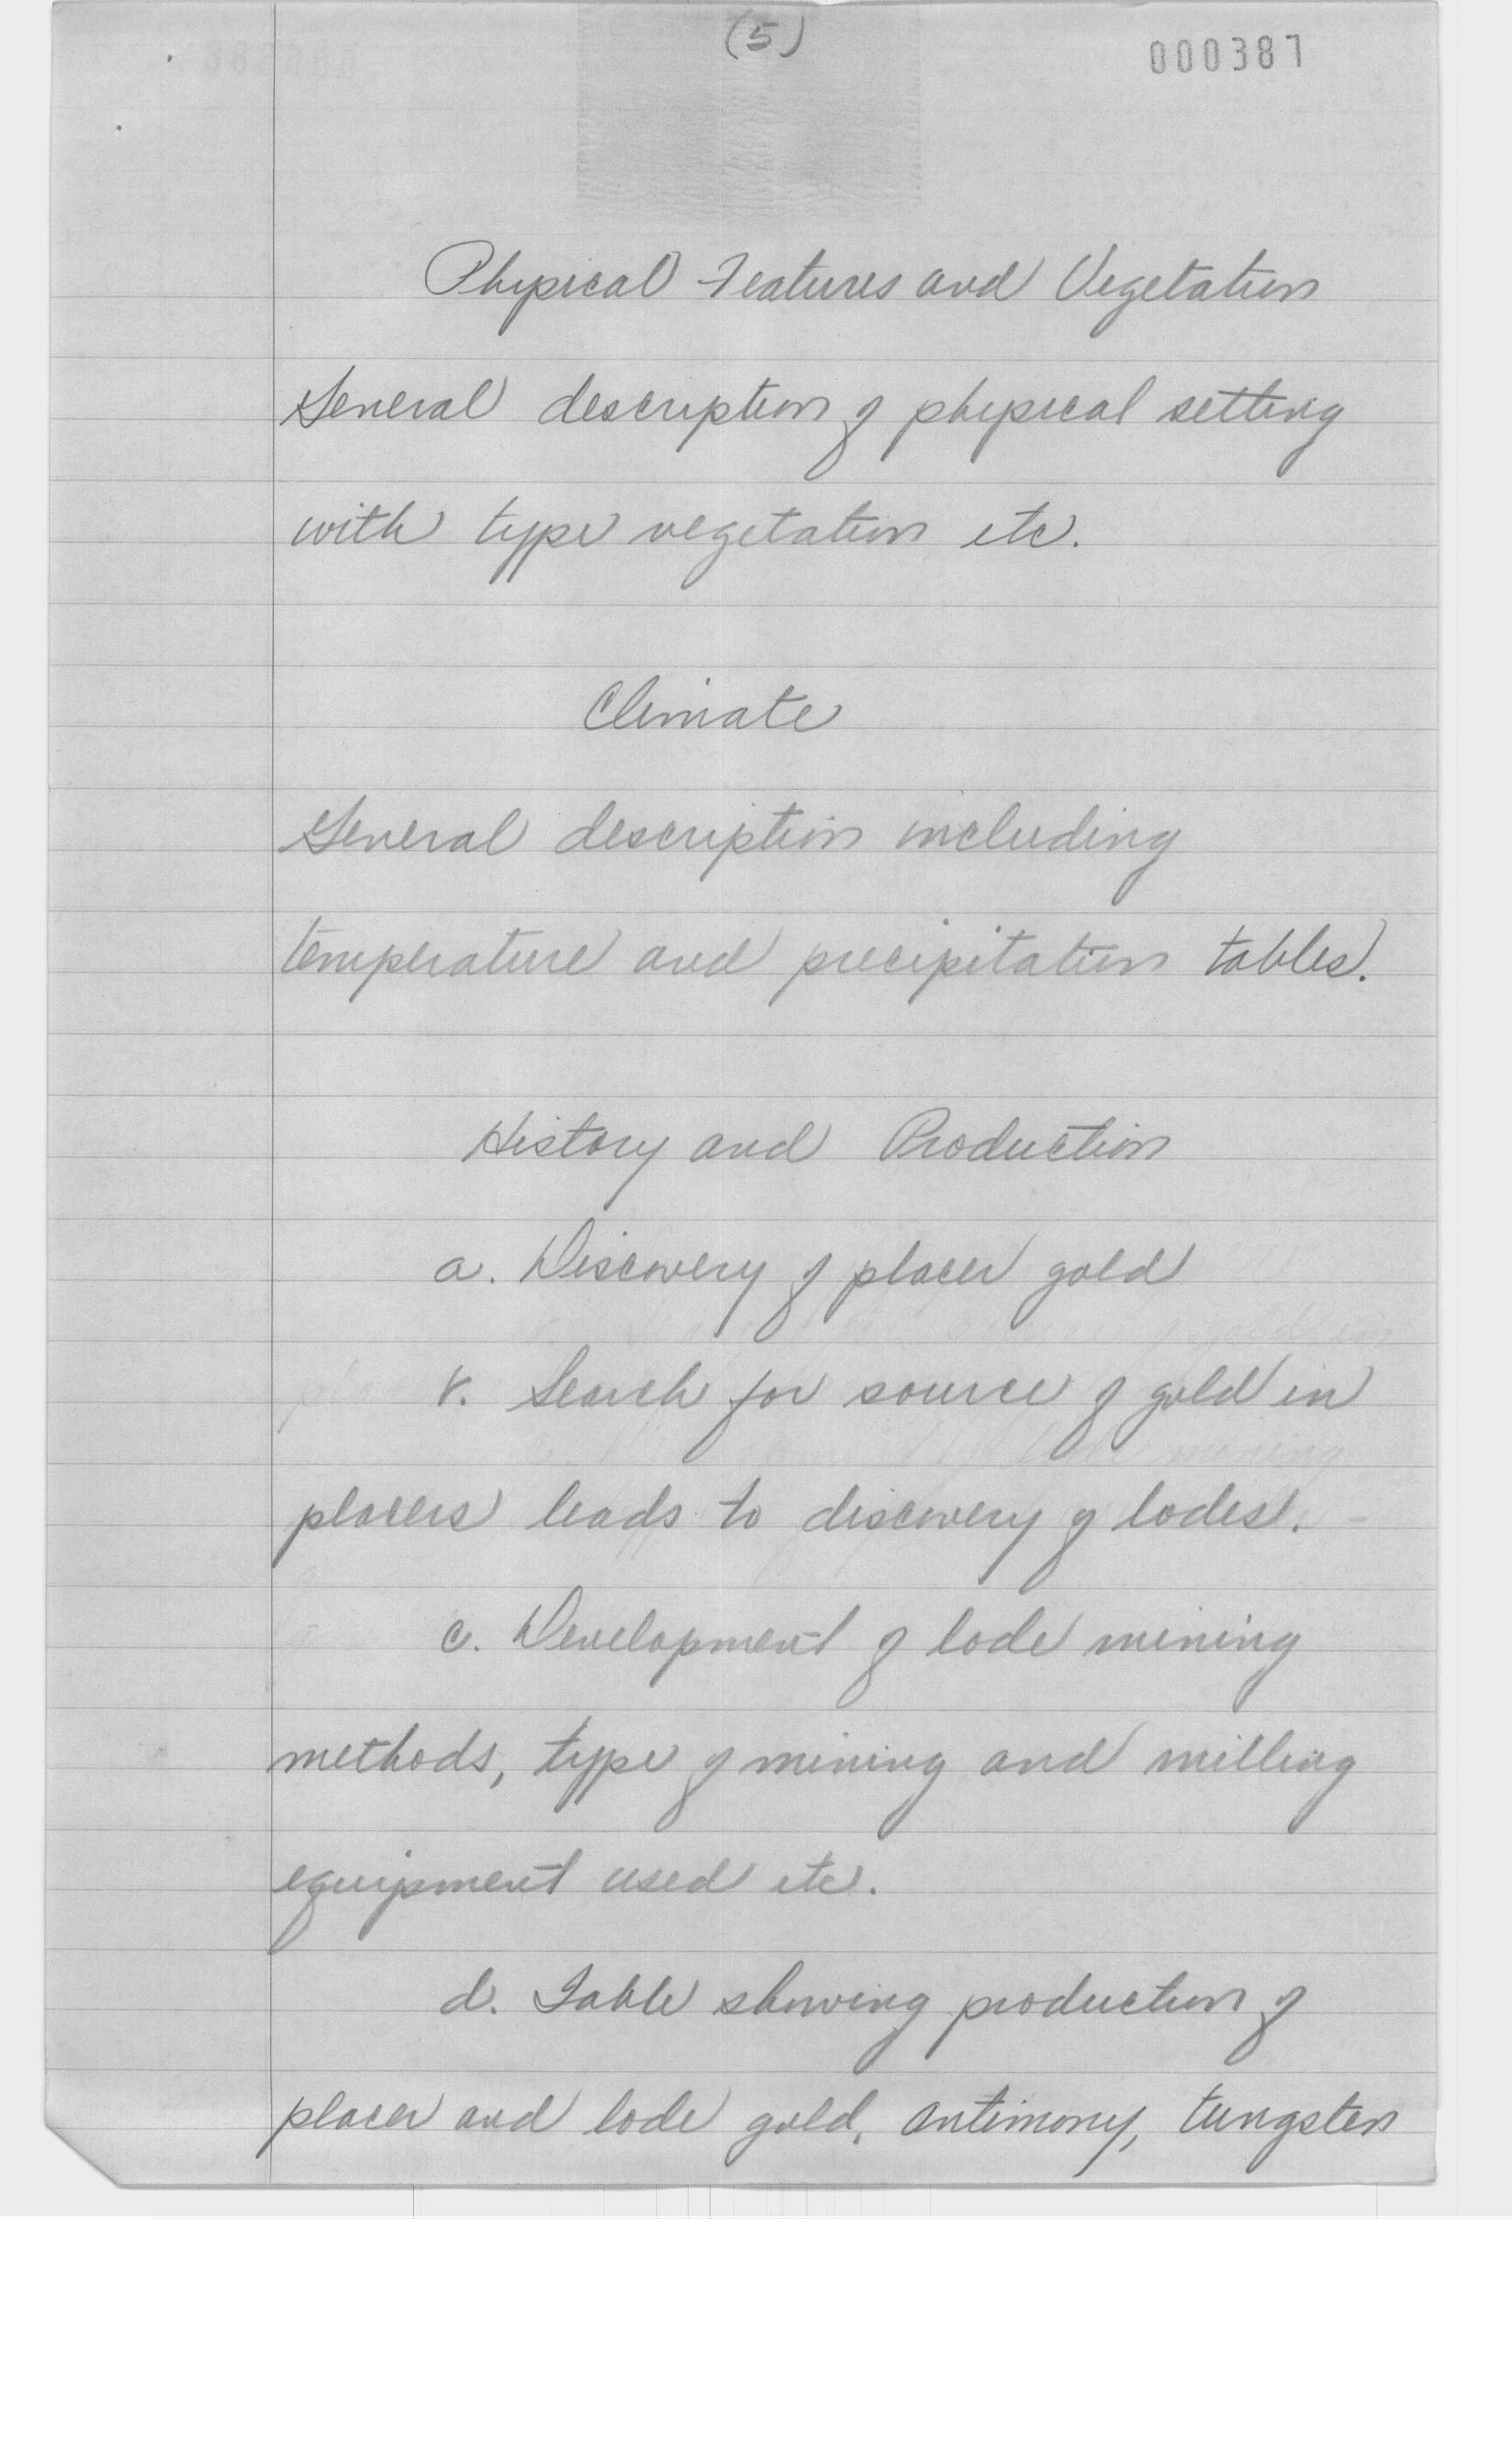 (5)
000387
Physical Features and Vegetation
General description of physical setting
with type vegetation etc.
Climate
General description including
temperature and precipitation tables.
History and Production
a. Discovery of placer gold
b. Search for source of gold in
placers leads to discovery of lodes.
c. Development of lode mining
methods, type of mining and milling
equipment used etc.
d. Table showing production of
placer and lode gold, antimony, tungsten